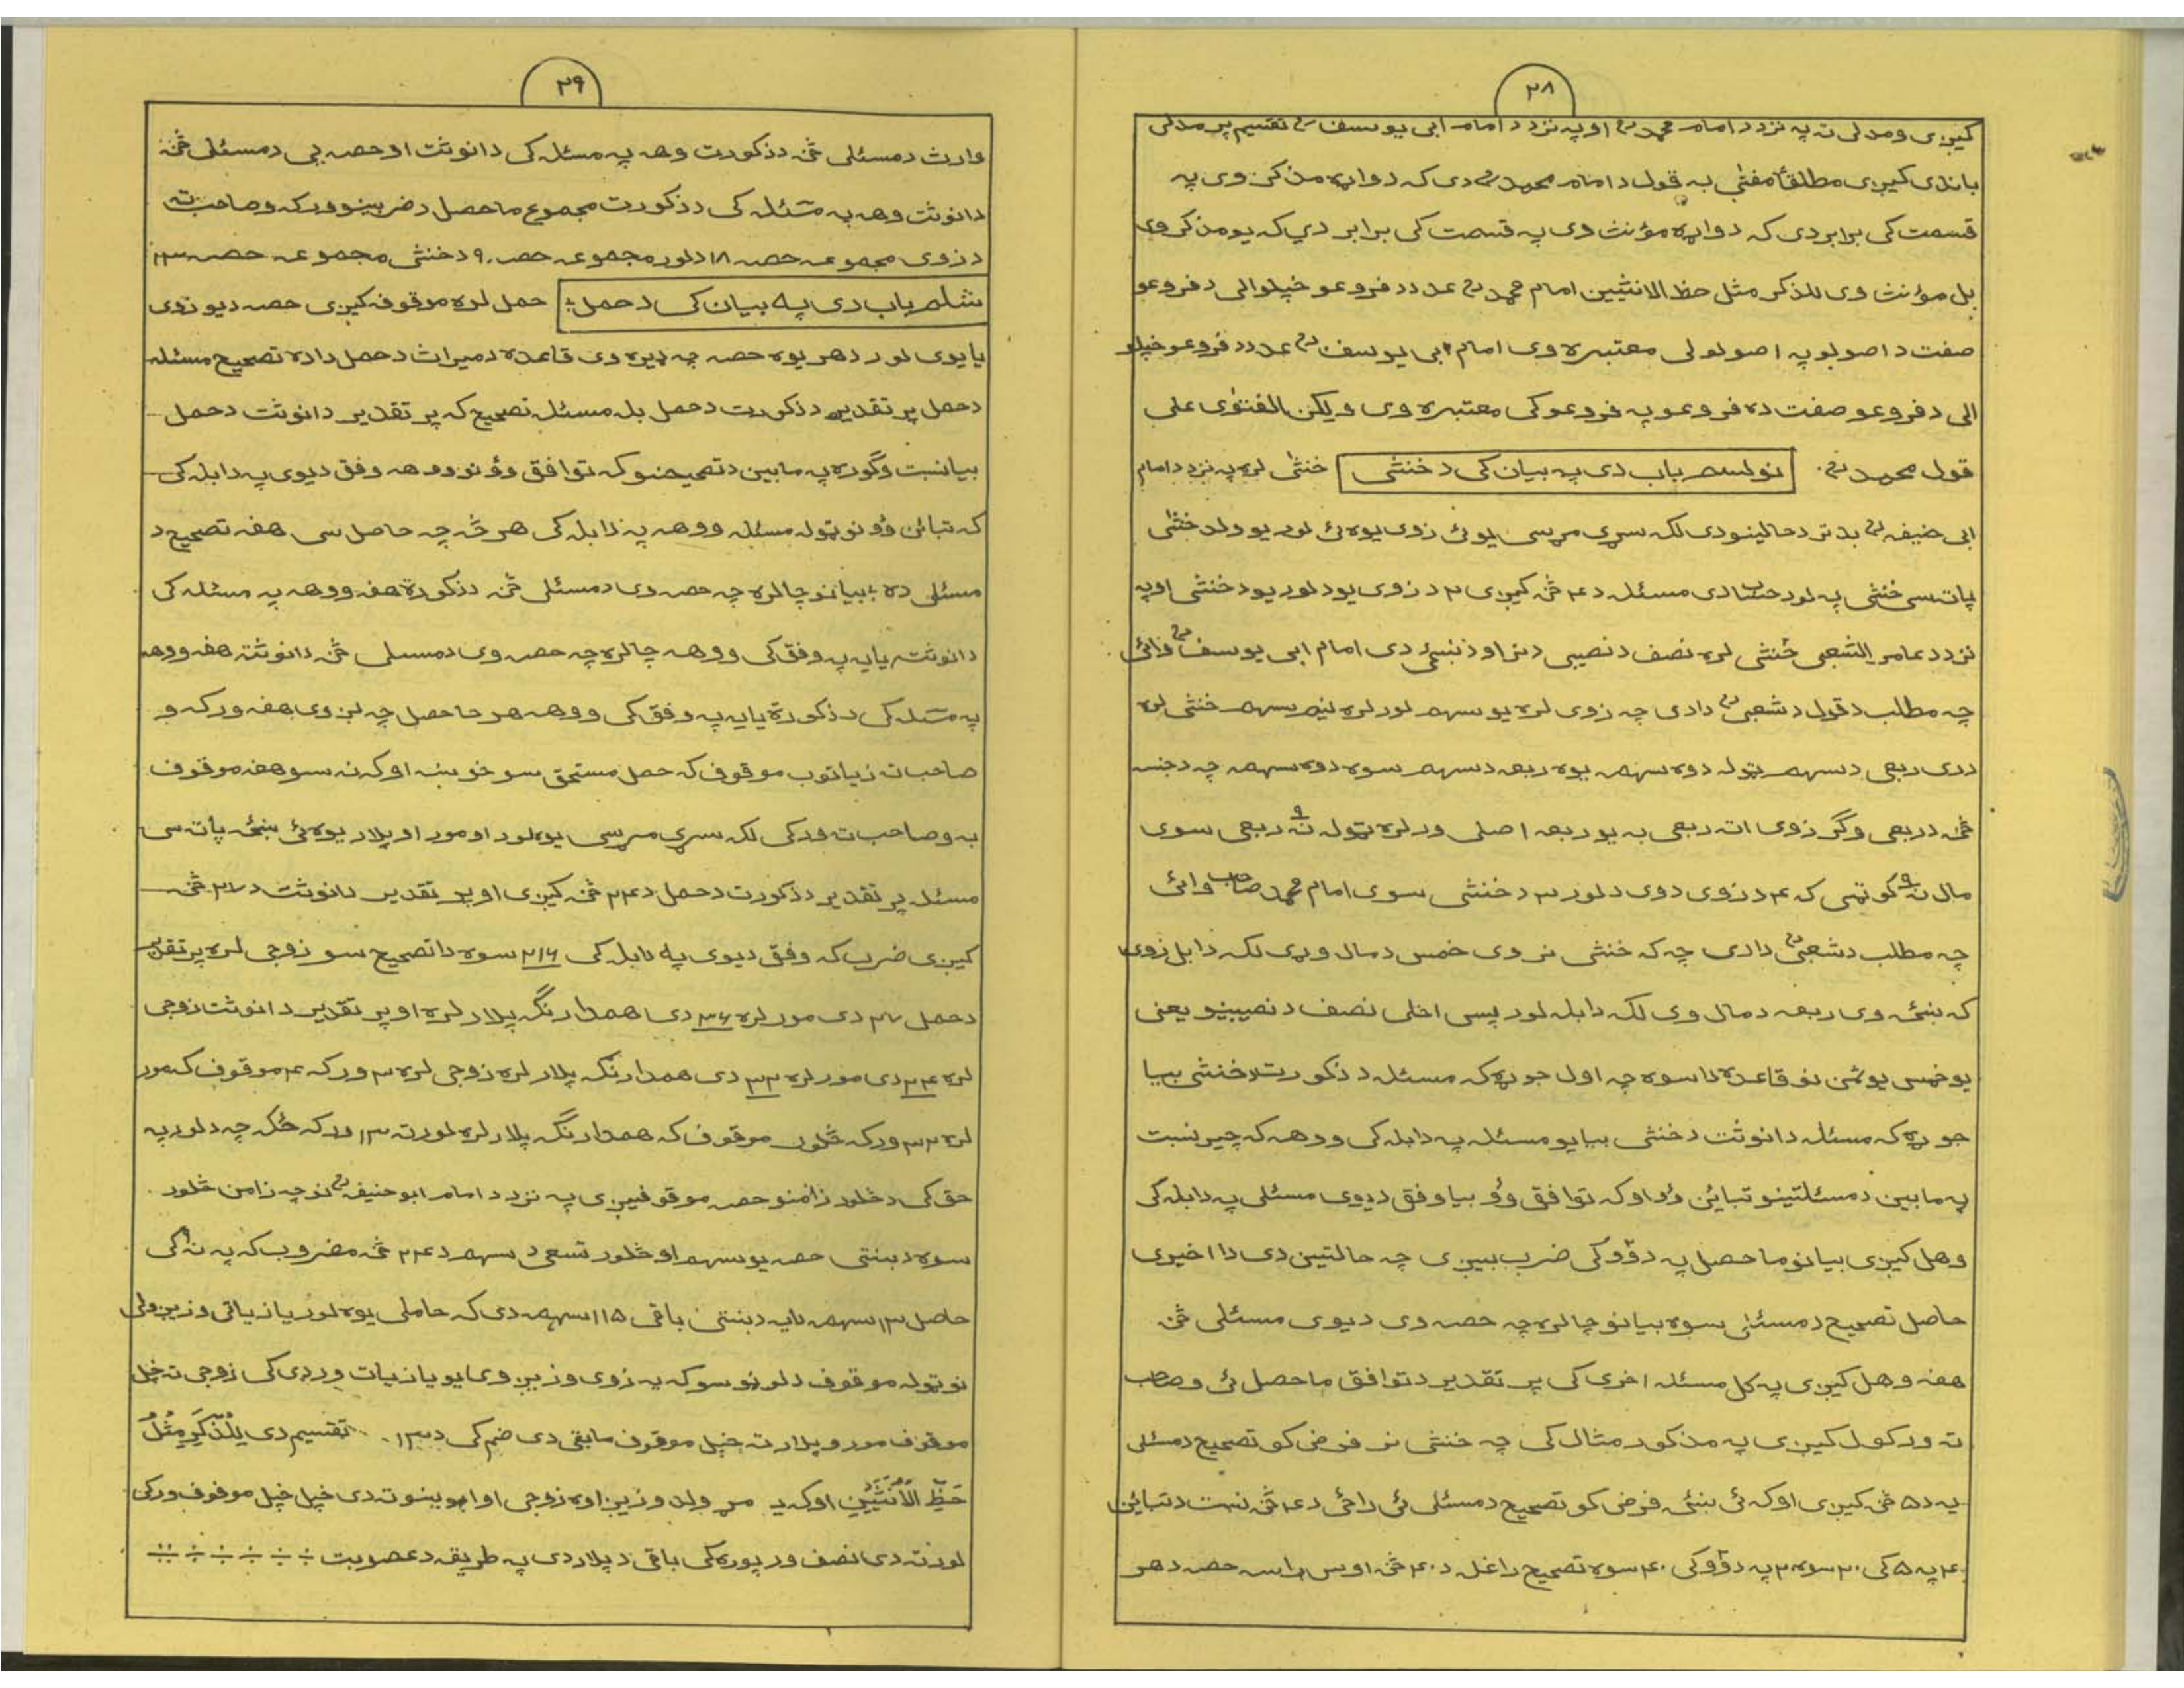 ۲۸
کیږی ومدلی ته په نزد د امام محمد رح او په نزد د امام ابی یوسف رح تقسیم پر مدلی
باندی کیږی مطلقاً مفتی به قول د امام محمد رح دی که دواړه مذکر وی په
قسمت کی برابر دی که دواړه مؤنث وی په قسمت کی برابر دي که یو مذکر وی
بل مؤنث وی للذکر مثل حظ الانثیین امام محمد رح عدد د فروعو خپلوالی د فروعو
صفت د اصولو په اصولو لی معتبره وی امام ابی یوسف رح عدد د فروعو خپلو
الی د فروعو صفت ده فروعو په فروعو کی معتبره وی ولیکن الفتوٰی علی
قول محمد رح. نولسم باب دی په بیان کی د خنثی خنثٰی لره په نزد د امام
ابی حنیفه رح بدتر د حالینو دی لکه سړی مړ سی یو ئ زوی یوه ئ لور یو ولد خنثٰی
پات سی خنثی په لور حساب دی مسئله د ۴ څخه کیږی ۲ د زوی یو د لور یو د خنثی او په
نزد د عامر الشعبی خنثی لره نصف د نصیبی د نر او د ښځی دی امام ابی یوسف رح وائی
چه مطلب د قول د شعبی رح دادی چه زوی لره یو سهم لور لره نیم سهم خنثی لره
دری ربعی د سهم ټوله دوه سهمه یوه ربعه د سهم سوه دوه سهمه چه د جنسه
څخه د ربعی وګرزوی اته ربعی به یو ربعه اصلی ورلره ټوله نه ۹ ربعی سوی
مال نه ۹ کو ټمی که ۴ د زوی دوی د لور ۳ د خنثی سوی امام محمد صاحب وائی
چه مطلب د شعبی رح دادی چه که خنثی نر وی خمس د مال وړی لکه دا بل زوی
که ښځه وی ربعه د مال وی لکه دا بله لور پسی اخلی نصف د نصیبینو یعنی
یو خمس یو ثمن نو قاعده دا سوه چه اول جوړه که مسئله د ذکورت د خنثی بیا
جوړه که مسئله د انوثت د خنثی بیا یو مسئله په دا بله کی ووهه که چیر نسبت
په مابین د مسئلتینو تباین وُو او که توافق وُو بیا وفق د یوی مسئلی په دا بله کی
وهل کیږی بیا نو ماحصل په دوُو کی ضرب ښیږی چه حالتین دی دا اخیری
حاصل تصحیح د مسئلی سوه بیا نو چا لره چه حصه وی د یوی مسئلی څخه
هغه وهل کیږی په کل مسئله اخری کی پر تقدیر د توافق ماحصل ئی وصاحب
ته ورکول کیږی په مذکور مثال کی چه خنثی نر فرض کو تصحیح د مسئلی
یه د ۵ څخه کیږی او که ئی ښځه فرض کو تصحیح د مسئلی ئی راځی د ۴ څخه نسبت د تباین
۴ په ۵ کی ۲۰ سوه ۲ په دوُو کی ۴۰ سوه تصحیح راغله د ۴۰ څخه اوس راسه حصه د هر
۲۹
وارث د مسئلی څخه د ذکورت وهه په مسئله کی د انوثت او حصه یی د مسئلی څخه
د انوثت وهه په مسئله کی د ذکورت مجموع ماحصل د ضربینو ورکه وصاحب ته
د زوی مجموعه حصه ۱۸ د لور مجموعه حصه ۹ د خنثی مجموعه حصه ۱۳
شلم باب دی په بیان کی د حمل؛ حمل لره موقوفه کیږی حصه د یو زوی
یا یوی لور د هر یوه حصه چه ډیره وی قاعده د میراث د حمل داده تصحیح مسئله
د حمل پر تقدیر د ذکورت د حمل بله مسئله تصحیح که پر تقدیر د انوثت د حمل
بیا نسبت وګوره په مابین د تصحیحینو که توافق وُو نو ووهه وفق د یوی په دا بله کی
که تبائن وُو نو ټوله مسئله ووهه په دا بله کی هر څه چه حاصل سی هغه تصحیح د
مسئلی ده بیا نو چا لره چه حصه وی د مسئلی څخه د ذکورة هغه ووهه په مسئله کی
د انوثت یا یه په وفق کی ووهه چا لره چه حصه وی د مسئلی څخه د انوثت هغه ووهه
په مسئله کی د ذکورة یا یه په وفق کی ووهه هر حاصل چه لږ وی هغه ورکه و
صاحب ته زیاتوب موقوف که حمل مستحق سو خو ښه او که نه سو هغه موقوف
به وصاحب ته ورکی لکه سړی مړ سی یوه لور او مور او پلار یوه ئ ښځه پات سی
مسئله پر تقدیر د ذکورت د حمل د ۲۴ څخه کیږی او پر تقدیر د انوثت د ۲۷ څخه
کیږی ضرب که وفق د یوی په دا بله کی ۲۱۶ سوه دا تصحیح سو زوجی لره پر تقدیر
د حمل ۲۷ دی مور لره ۳۶ دی همدارنګه پلار لره او پر تقدیر د انوثت زوجی
لره ۲۴ دی مور لره ۳۲ دی همدارنګه پلار لره زوجی لره ۳ ورکه ۴ موقوف که مور
لره ۳۲ ورکه څلور موقوف که همدارنګه پلار لره لور ته ۱۳ ورکه ځکه چه د لور په
حق کی د څلور زامنو حصه موقوفیږی په نزد د امام ابو حنیفه رح نو چه زامن څلور
سوه د ښتی حصه یو سهم او څلور تسعی د سهم د ۲۴ څخه مضروب که په نه کی
حاصل ۱۳ سهمه دایه د ښتی باقی ۱۱۵ سهمه دی که حاملی یوه لور یا زیاتی وزیږولی
نو ټوله موقوف د لورنو سو که یه زوی وزیږوی یو یا زیات وردی کی زوجی ته خپل
موقوف مور وپلار ته خپل موقوف مابقی دی ضم کی د ۱۳. تقسیم دی لِلذَّکَرِ مِثْلُ
حَظِّ الْاُنْثَیَیْنِ او که یه مړ ولد وزیږاوه زوجی او ابوینو ته دی خپل خپل موقوف ورکی
لور ته دی نصف ور پوره کی باقی د پلار دی په طریقه د عصوبت